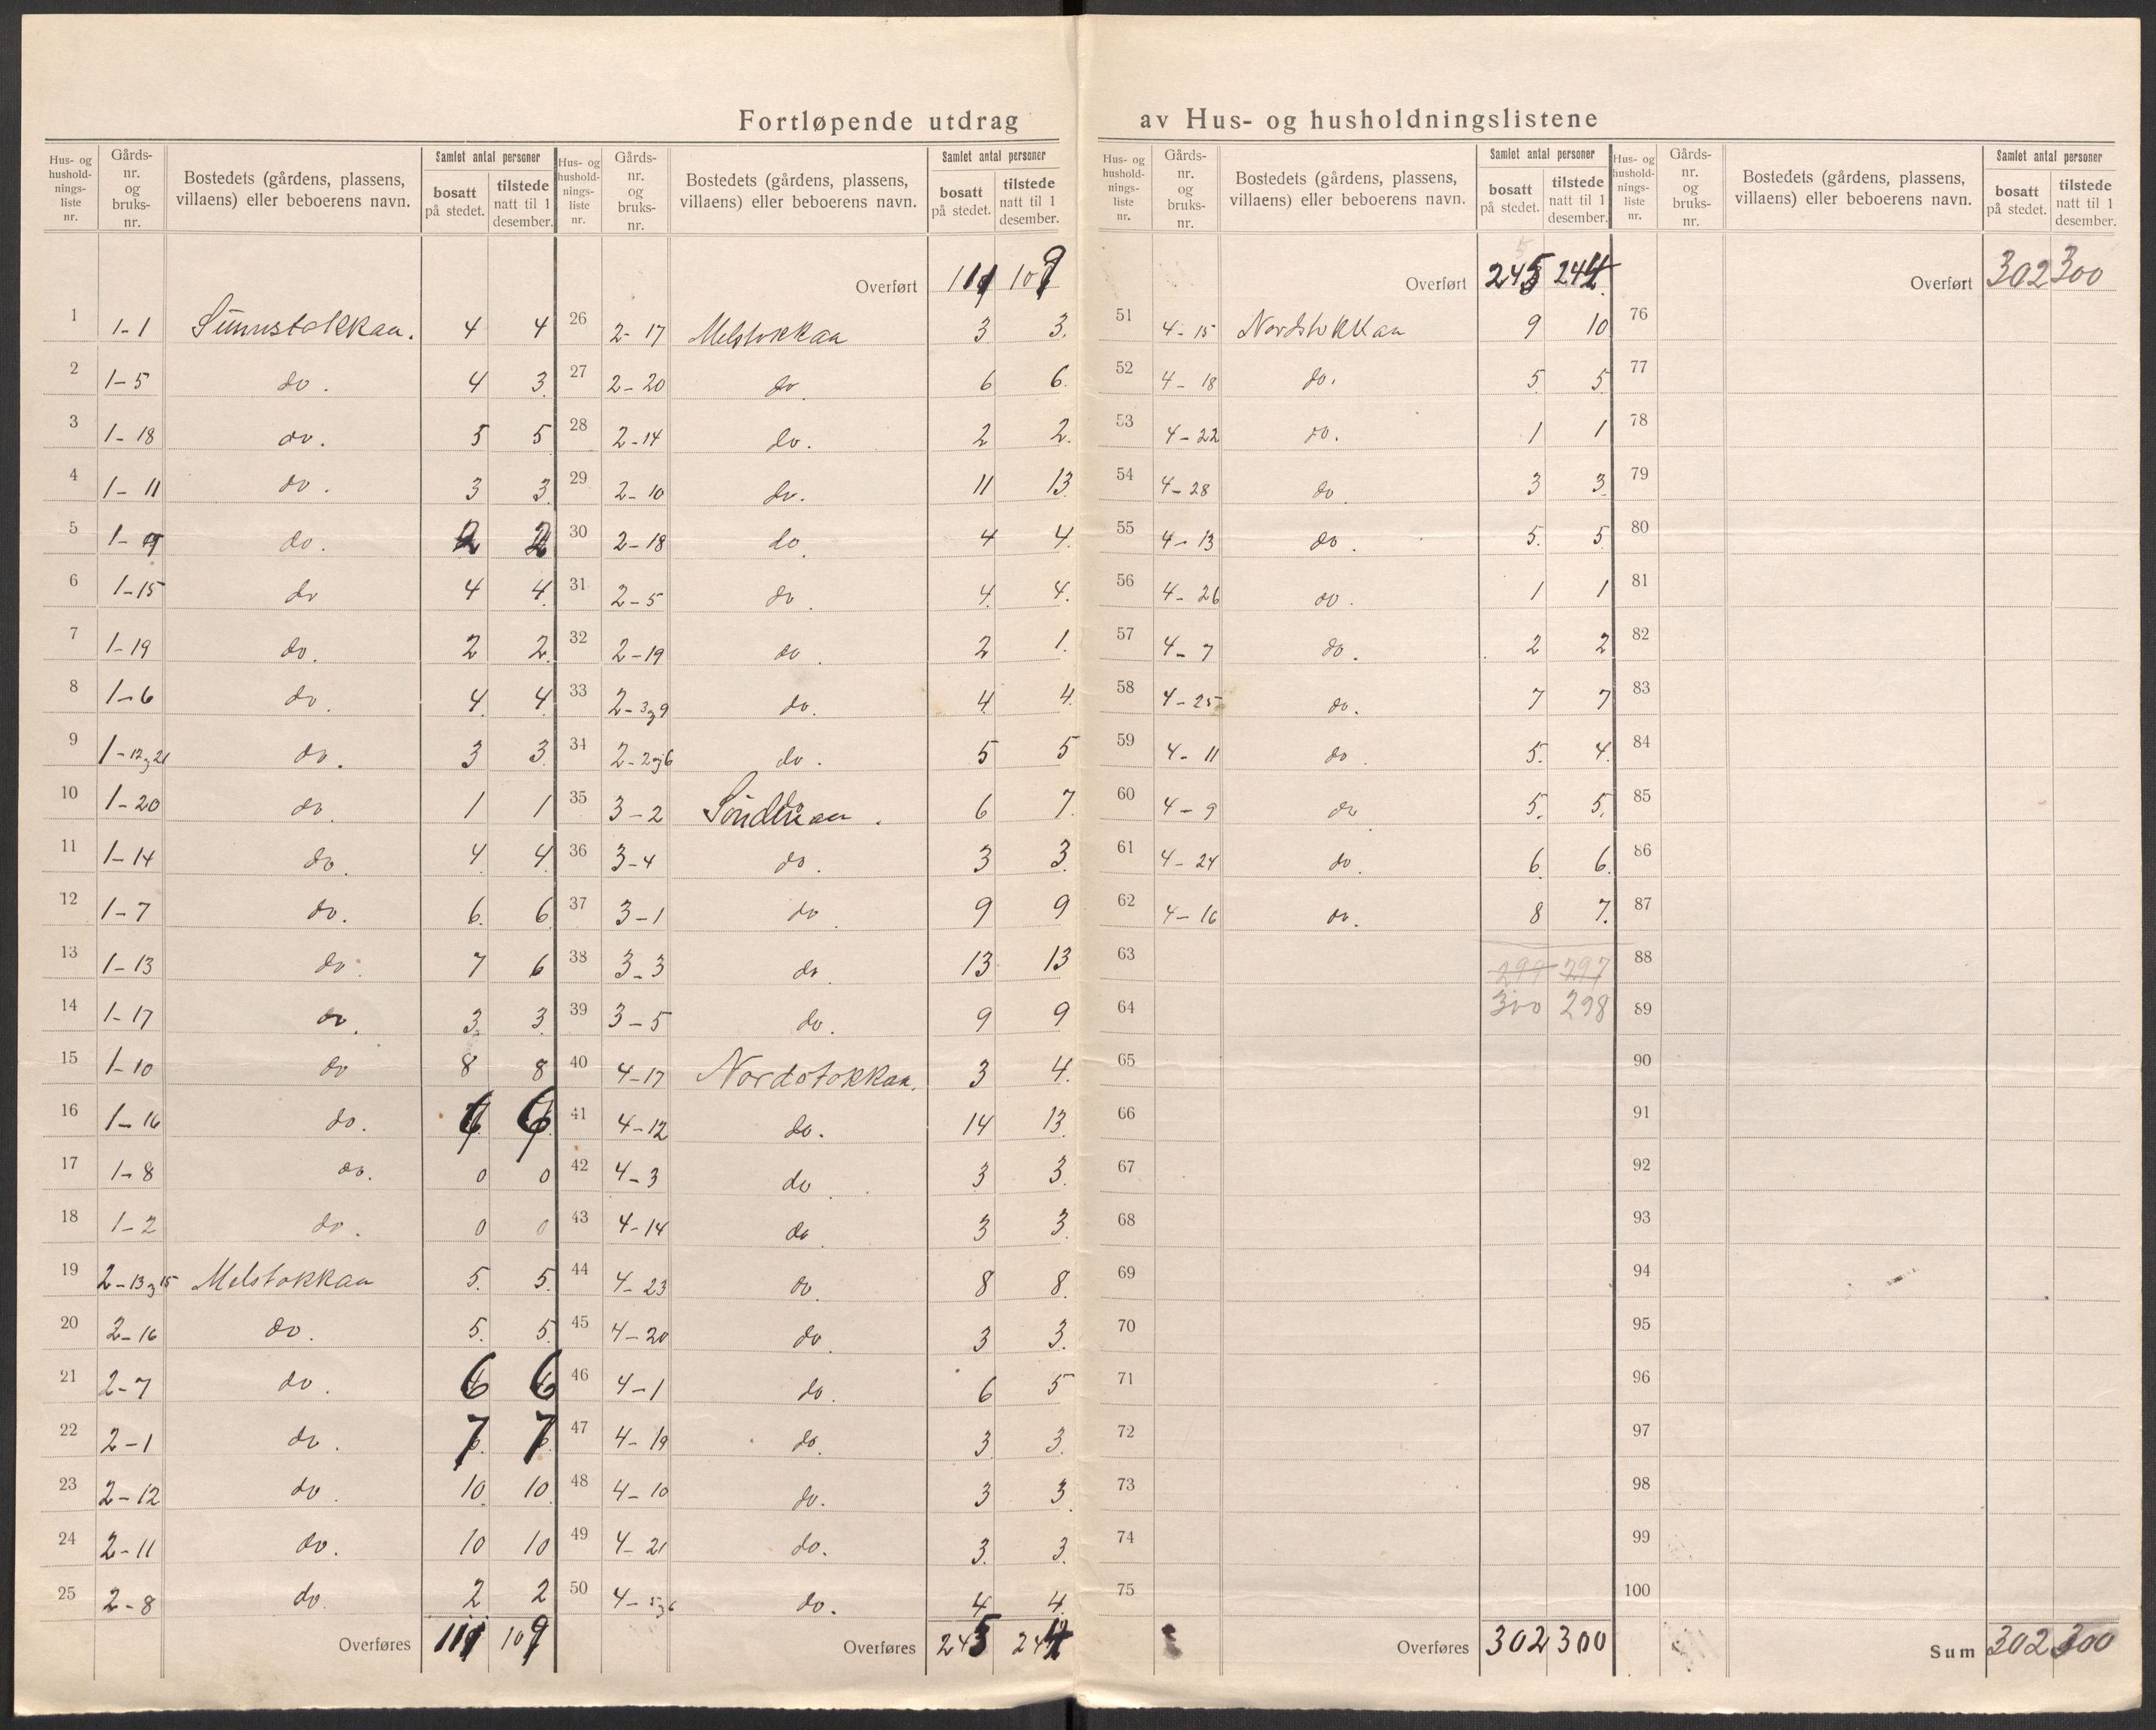 Fortløpende utdrag av Hus- og husholdningslistene
Hus- og hushold-nings-liste nr. | Gårds-nr. og bruks-nr. | Bostedets (gårdens, plassens, villaens) eller beboerens navn. | Samlet antal personer | bosatt på stedet. | tilstede natt til 1 desember.
1 1-1 Sunnstokkan. 4 4
2 1-5 do. 4 3.
3 1-18 do. 5 5
4 1-11 do. 3 3.
5 1-9 do. 2 2
6 1-15 do 4 4.
7 1-19 do. 2 2.
8 1-6 do. 4. 4.
9 1-12og21 do. 3 3.
10 1-20 do. 1 1
11 1-14 do. 4. 4.
12 1-7 do. 6. 6.
13 1-13 do. 7 6
14 1-17 do. 3. 3.
15 1-10 do 8 8
16 1-16 do. 6 6
17 1-8 do. 0 0
18 1-2 do. 0 0
19 2-13og15 Melstokkan 5. 5.
20 2-16 do. 5. 5.
21 2-7 do. 6 6
22 2-1 do. 7 7
23 2-12 do. 10. 10.
24 2-11 do. 10 10
25 2-8 do. 2 2
Overføres 111 109
Hus- og hushold-nings-liste nr. | Gårds-nr. og bruks-nr. | Bostedets (gårdens, plassens, villaens) eller beboerens navn. | Samlet antal personer | bosatt på stedet. | tilstede natt til 1 desember.
Overført 111 109
26 2-17 Melstokkan 3 3.
27 2-20 do. 6 6.
28 2-14 do. 2 2.
29 2-10 do. 11 13
30 2-18 do. 4 4.
31 2-5 do. 4. 4.
32 2-19 do. 2 1.
33 2-3og9 do. 4. 4.
34 2-2og6 do. 5 5
35 3-2 6 7.
36 3-4 do. 3 3.
37 3-1 do. 9 9
38 3-3 do. 13 13
39 3-5 do. 9 9
40 4-17 Nordstokkan. 3 4.
41 4-12 do. 14 13.
42 4-3 do. 3 3.
43 4-14 do. 3 3.
44 4-23 do. 8 8.
45 4-20 do. 3 3.
46 4-1 do. 6 5
47 4-19 do. 3. 3.
48 4-10 do. 3 3.
49 4-21 do. 3. 3.
50 4-5og6 do. 4 4.
Overføres 245 244
Hus- og hushold-nings-liste nr. | Gårds-nr. og bruks-nr. | Bostedets (gårdens, plassens, villaens) eller beboerens navn. | Samlet antal personer | bosatt på stedet. | tilstede natt til 1 desember.
5
Overført 245 244.
51 4-15 Nordstokkan 9 10
52 4-18 do. 5. 5
53 4-22 do. 1 1
54 4-28 do. 3 3.
55 4-13 do. 5. 5
56 4-26 do. 1 1
57 4-7 do. 2 2
58 4-25 do. 7 7
59 4-11 do. 5. 4.
60 4-9 do. 5. 5.
61 4-24 do. 6. 6.
62 4-16 do. 8 7.
63 299 297
64 300 298
65
66
67
68
69
70
71
72
73
74
75
Overføres 302 300
Hus- og hushold-nings-liste nr. | Gårds-nr. og bruks-nr. | Bostedets (gårdens, plassens, villaens) eller beboerens navn. | Samlet antal personer | bosatt på stedet. | tilstede natt til 1 desember.
Overført 302 300
76
77
78
79
80
81
82
83
84
85
86
87
88
89
90
91
92
93
94
95
96
97
98
99
100
Sum 302 300